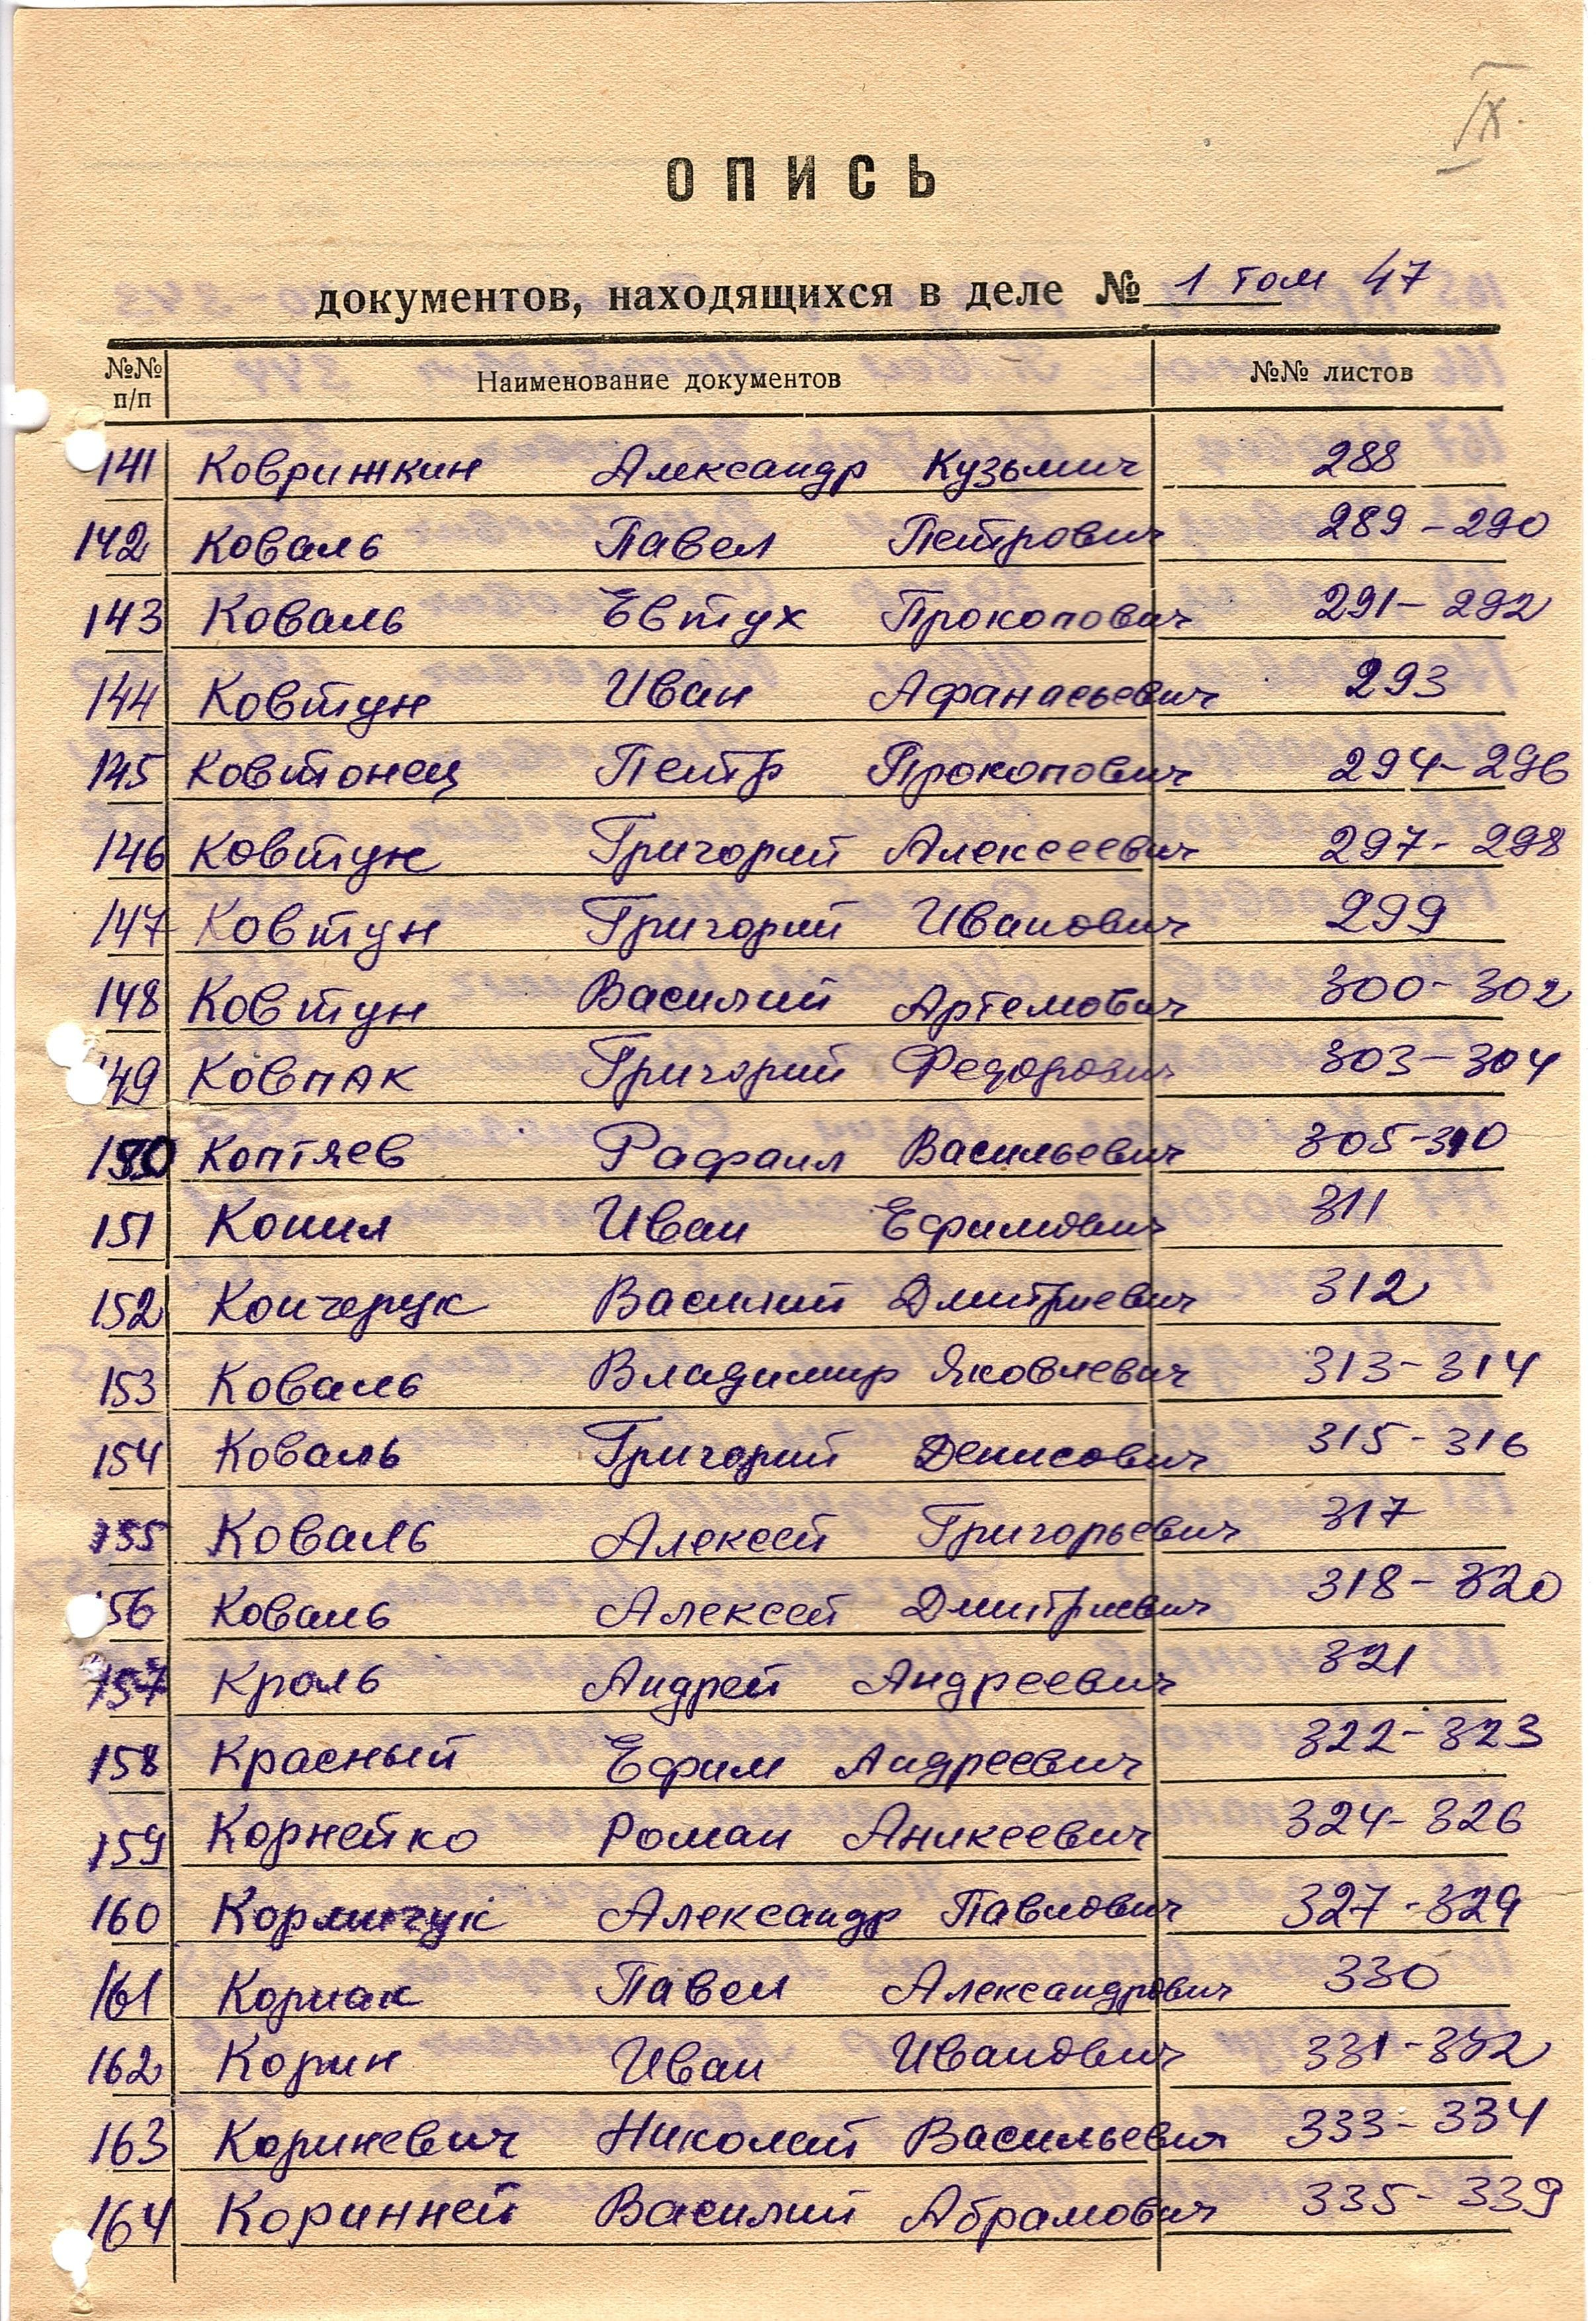 IX.
ОПИСЬ
документов, находящихся в деле № 1 том 47
№№ п/п Наименование документов №№ листов
141 Коврижкин Александр Кузьмич 288
142 Коваль Павел Петрович 289-290
143 Коваль Евтух Прокопович 291-292
144 Ковтун Иван Афанасьевич 293
145 Ковтонец Петр Прокопович 294-296
146 Ковтун Григорий Алексеевич 297-298
147 Ковтун Григорий Иванович 299
148 Ковтун Василий Артемович 300-302
149 Ковпак Григорий Федорович 303-304
150 Коптяев Рафаил Васильевич 305-310
151 Копил Иван Ефимович 311
152 Кончерук Василий Дмитриевич 312
153 Коваль Владимир Яковлевич 313-314
154 Коваль Григорий Денисович 315-316
155 Коваль Алексей Григорьевич 317
156 Коваль Алексей Дмитриевич 318-320
157 Кроль Андрей Андреевич 321
158 Красный Ефим Андреевич 322-323
159 Корнейко Роман Аникеевич 324-326
160 Кормичук Александр Павлович 327-329
161 Корнак Павел Александрович 330
162 Корин Иван Иванович 331-332
163 Кориневич Николай Васильевич 333-334
164 Коринней Василий Абрамович 335-339